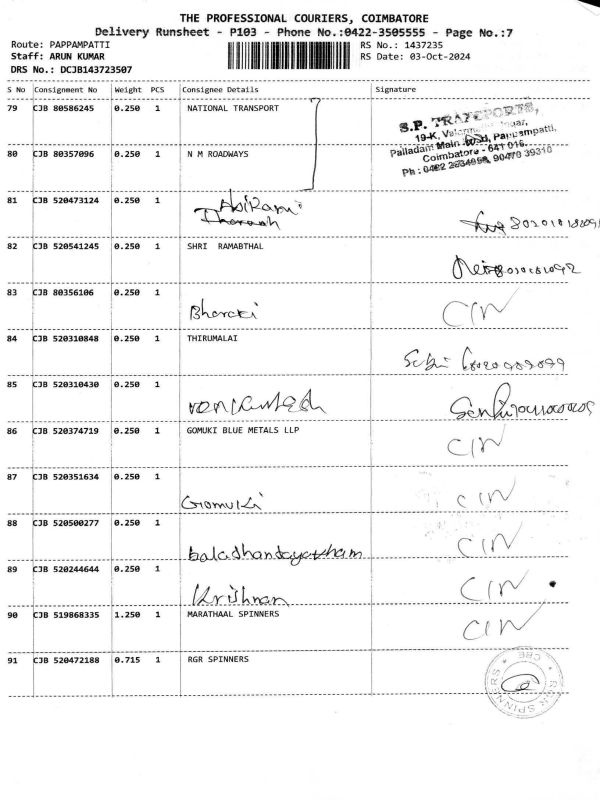 THE PROFESSIONAL COURIERS, COIMBATORE
Delivery Runsheet - P103 - Phone No.:0422-3505555 - Page No.:7
Route: PAPPAMPATTI RS No.: 1437235
Staff: ARUN KUMAR RS Date: 03-Oct-2024
DRS No.: DCJB143723507
S No Consignment No Weight PCS Consignee Details Signature
79 CJB 80586245 0.250 1 NATIONAL TRANSPORT
S.P. TRANSPORTS,
19-K, Nagar,
Palladam Main Road, Pappampatti,
Coimbatore - 641 016.
80 CJB 80357096 0.250 1 N M ROADWAYS
81 CJB 520473124 0.250 1 Abirami
82 CJB 520541245 0.250 1 SHRI RAMABTHAL
83 CJB 80356106 0.250 1 Bharati CIN
84 CJB 520310848 0.250 1 THIRUMALAI
85 CJB 520310430 0.250 1
86 CJB 520374719 0.250 1 GOMUKI BLUE METALS LLP CIN
87 CJB 520351634 0.250 1 Gomuki CIN
88 CJB 520500277 0.250 1 CIN
89 CJB 520244644 0.250 1 Krishnan CIN
90 CJB 519868335 1.250 1 MARATHAAL SPINNERS CIN
91 CJB 520472188 0.715 1 RGR SPINNERS
RGR SPINNERS * CBE *